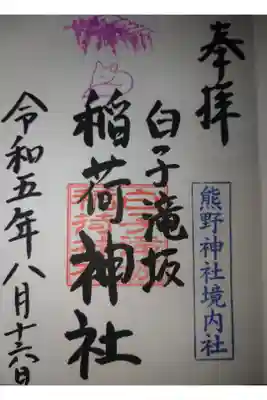 奉拝
熊野神社境内社
白子滝坂
稲荷神社
令和五年八月十六日